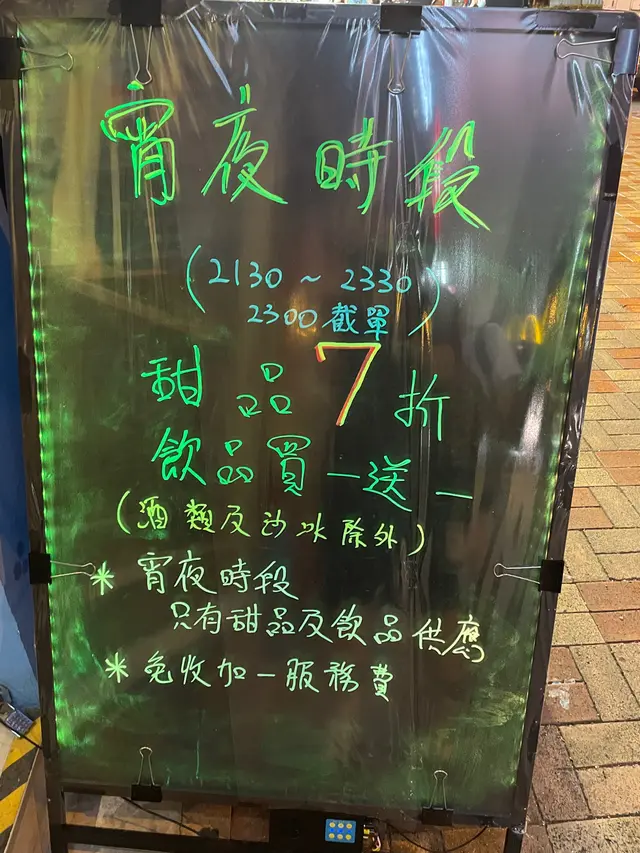 宵夜時段
(2130 ~ 2330)
2300 截單
甜品7折
飲品買一送一
(酒類及沙冰除外)
* 宵夜時段
只有甜品及飲品供應
* 免收加一服務費